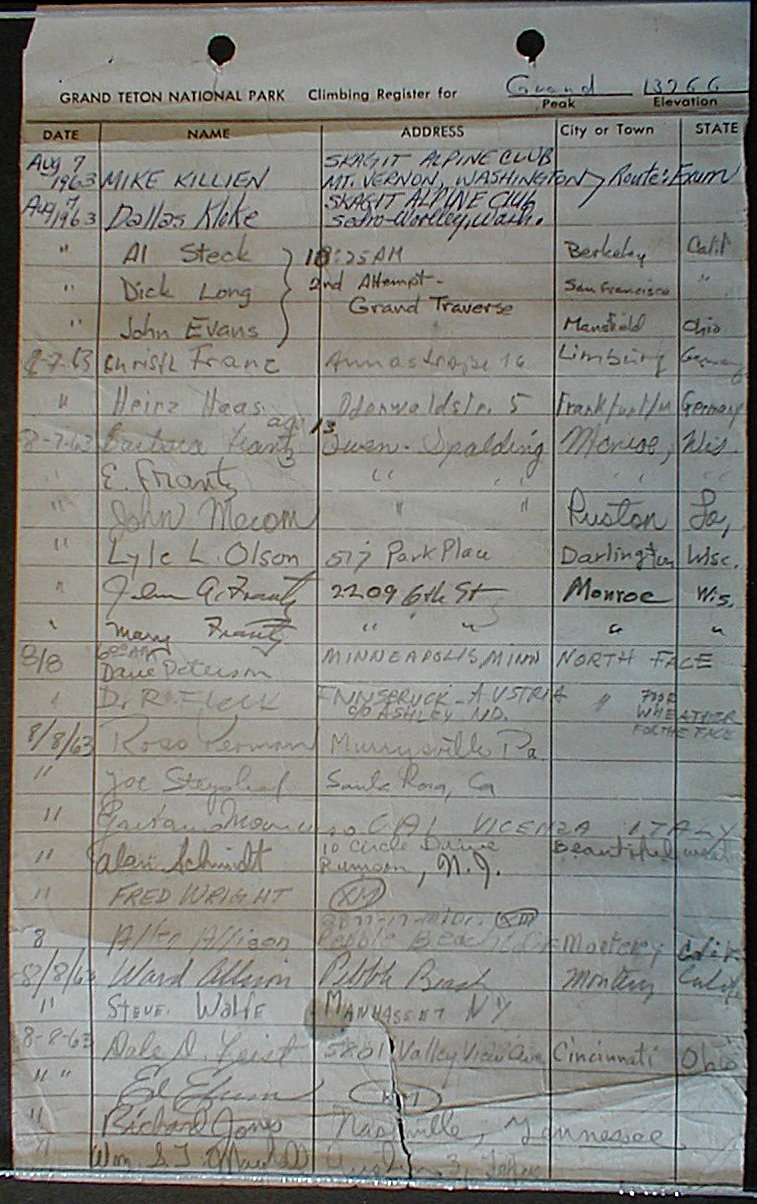 GRAND TETON NATIONAL PARK Climbing Register for Grand 13766
Peak Elevation
DATE NAME ADDRESS City or Town STATE
Aug 7 1963 MIKE KILLIEN SKAGIT ALPINE CLUB MT. VERNON, WASHINGTON Route: Exum
Aug 7, 1963 Dallas Kloke SKAGIT ALPINE CLUB Sedro-Woolley, Wash.
" Al Steck 10:25AM Berkeley Calif
" Dick Long 2nd Attempt- San Francisco "
Grand Traverse
" John Evans Mansfield Ohio
8-7-63 Christl Franz Annastrasse 16 Limburg Germany
" Heinz Haas Odenwaldstr. 5 Frankfurt/M Germany
age 13
8-7-63 Barbara Frantz Owen-Spalding Monroe, Wis.
" E. Frantz " " " "
" John Macom " " Ruston La,
" Lyle L. Olson 517 Park Place Darlington Wisc.
" John G. Frantz 2209 6th St Monroe Wis.
" Mary Frantz " " " " "
8/8 600 AM Dave Peterson MINNEAPOLIS, MINN NORTH FACE
" D. R. INNSBRUCK - AUSTRIA "
c/o ASHLEY ND. WHEATHER
FOR THE FACE
8/8/63 Ross Murrysville Pa.
" Joe Santa Rosa, Ca
" Gaetano C.A.I. VICENZA ITALY
" Alan Schmidt 10 Circle Drive Rumson, N.J. Beautiful
" FRED WRIGHT XM
XM
8 Allison Pebble Beach Monterey Calif.
8/8/63 Ward Allison Pebble Beach Monterey Calif.
" STEVE WOLFE MANHASSET NY
8-8-63 Dale D. 5801 Valley View Ave Cincinnati Ohio
" " Ed XM
" Richard Jones Nashville, Tennessee
" Wm.